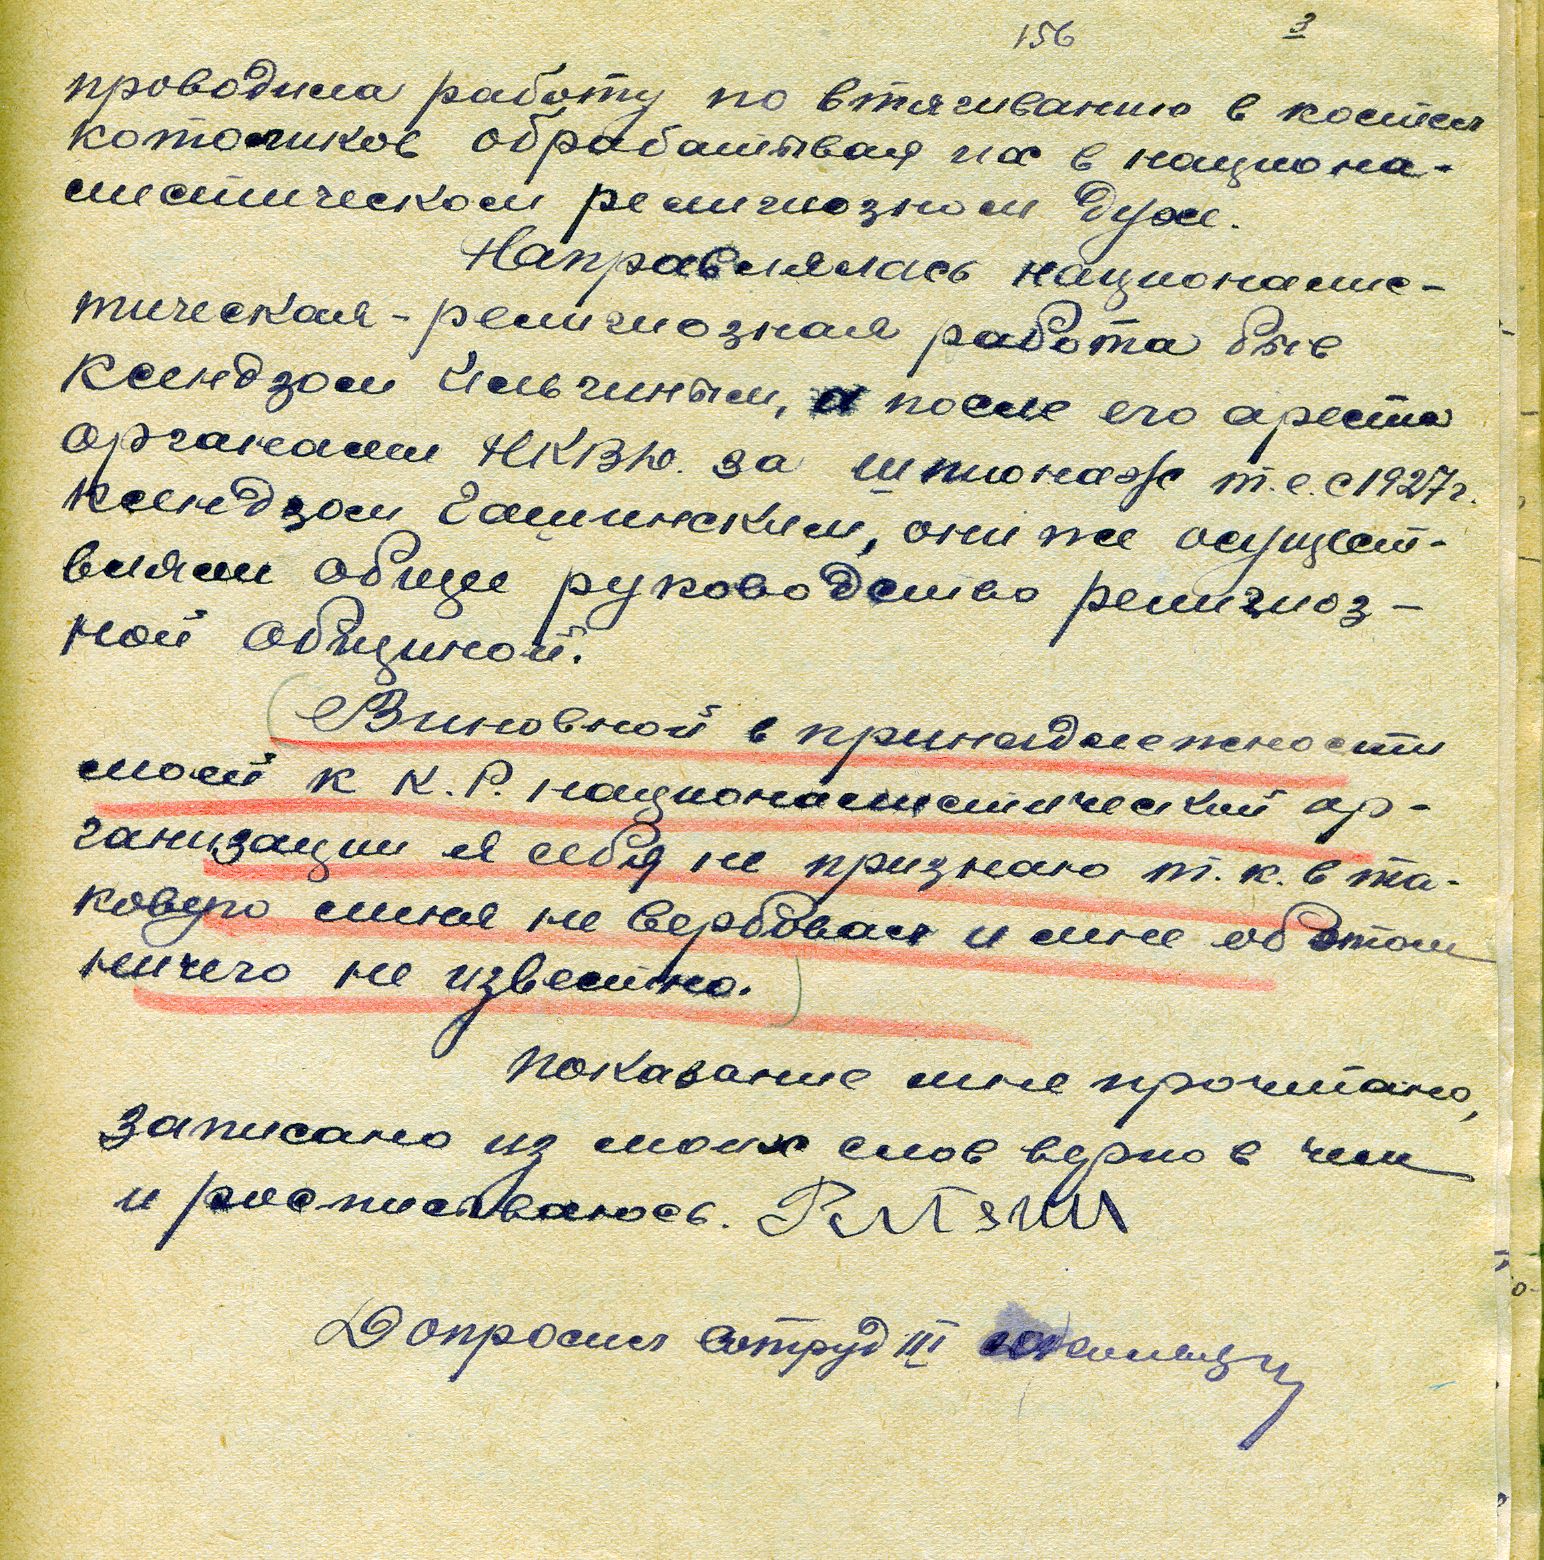 156 3
проводила работу по втягиванию в костел
котоликов обрабатывая их в национа-
листическом религиозном духе.
Направлялась националис-
тическая-религиозная работа быв
ксендзом Ильгиным, а после его ареста
органами НКВД. за шпионаж т.е. с 1927 г.
ксендзом они же осущест-
вляли общее руководство религиоз-
ной общиной.
Виновной в принадлежности
моей к К.Р. националистический ор-
ганизации я себя не признаю т.к. в та-
ковую меня не вербовал и мне об этом
ничего не известно.
Показание мне прочитано,
записано из моих слов верно в чем
и росписываюсь.
Допросил сотруд III